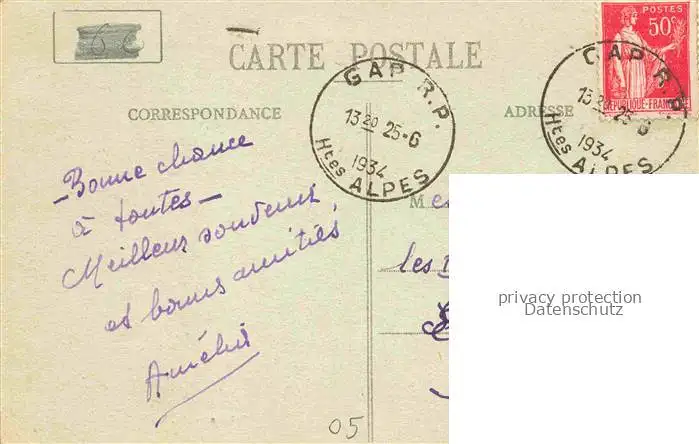 CARTE POSTALE
POSTES
50c
RÉPUBLIQUE-FRANÇAISE
GAP R.P.
13 20 25-6
1934
Htes ALPES
GAP R.P.
13 20 25-6
1934
Htes ALPES
CORRESPONDANCE
ADRESSE
- Bonne chance
à toutes -
Meilleur souvenir
et bonnes amitiés
M
les
privacy protection
Datenschutz
05